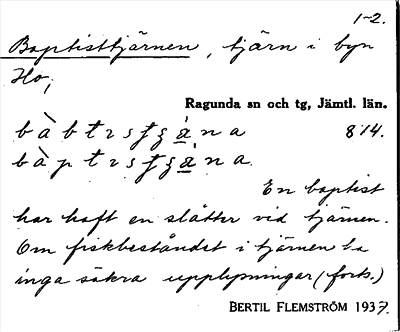 1-2.
Baptisttjärnen, tjärn i byn
Ho,
Ragunda sn och tg, Jämtl. län.
8:14.
En baptist
har haft en slåtter vid tjärnen.
Om fiskbeståndet i tjärnen ha
inga säkra upplysningar (forts.)
BERTIL FLEMSTRÖM 1937.